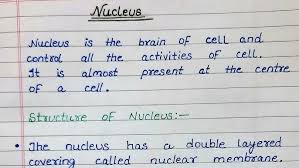 Nucleus
Nucleus is the brain of cell and
control all the activities of cell.
It is almost present at the centre
of a cell.
Structure of Nucleus:-
• The nucleus has a double layered
covering called nuclear membrane.